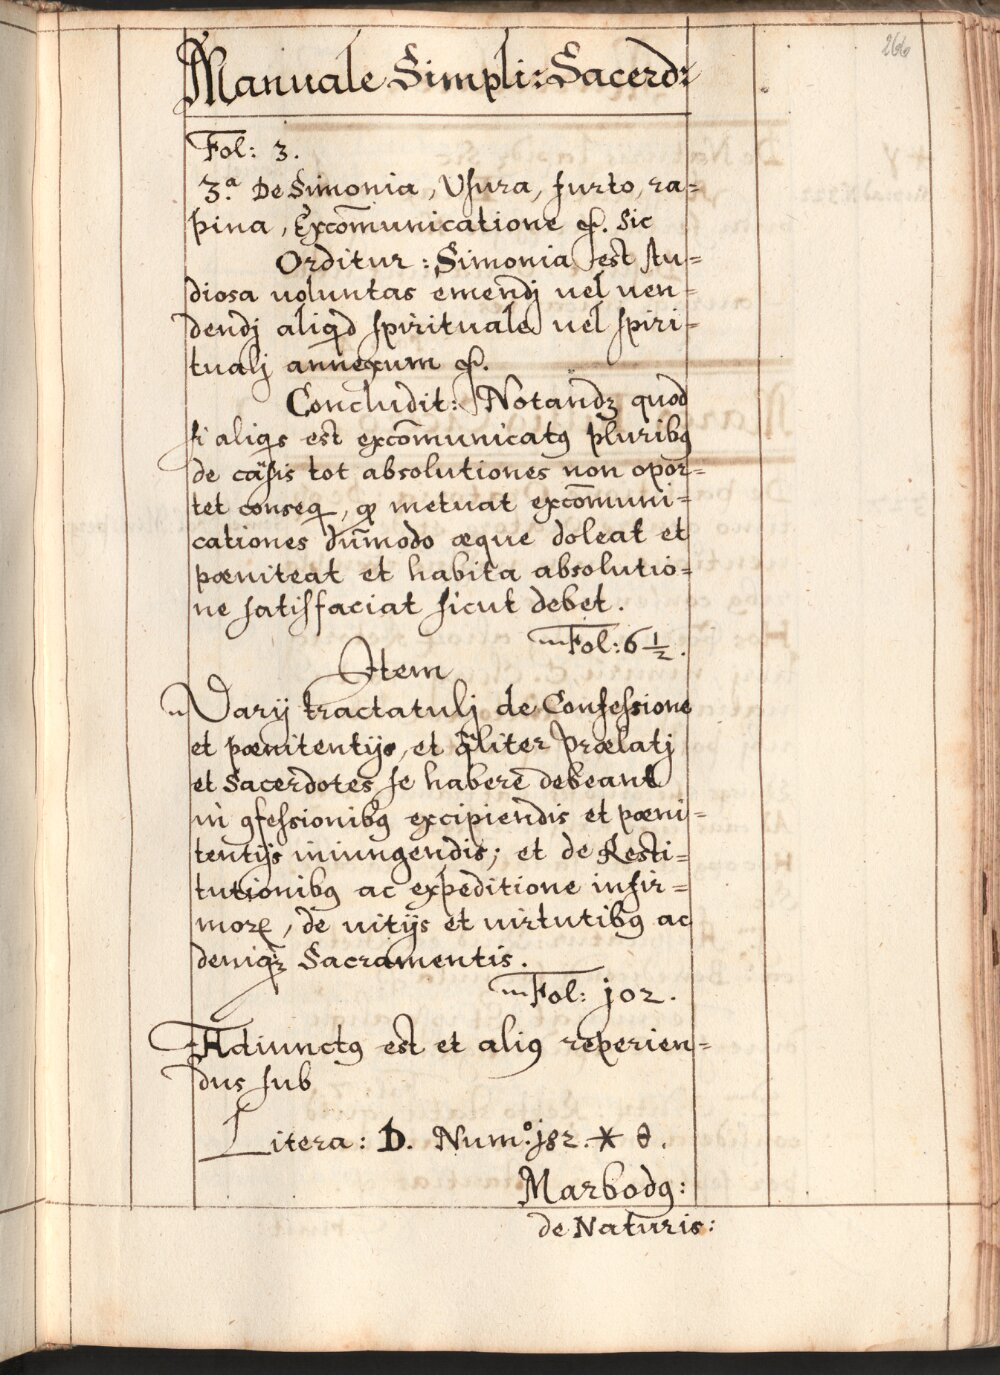 266
Manuale Simpli: Sacerd:
Fol: 3.
3.ª De Simonia, Vsura, furto, ra=
pina, Excõmunicatione &. Sic
Orditur: Simonia est stu=
diosa voluntas emendj vel ven=
dendj aliqd spirituale vel spiri=
tualj annexum &.
Concludit: Notandꝫ quod
si aliqs est excõmunicatꝰ pluribꝰ
de cãsis tot absolutiones non opor=
tet conseq, metuat excõmuni=
cationes dũmodo æque doleat et
pœniteat et habita absolutio=
ne satisfaciat sicut debet.
Fol: 6 ½.
Item
Varij tractatulj de Confessione
et pœnitentijs, et qliter Prælatj
et Sacerdotes se habere debeant
in ꝯfessionibꝰ excipiendis et pœni=
tentijs iniungendis; et de Resti=
tutionibꝰ ac expeditione infir=
moꝝ, de vitijs et virtutibꝰ ac
deniqꝫ Sacramentis.
Fol: j02.
Adiunctꝰ est et aliꝰ reperien=
dus sub
Litera: D. Num.º j82. * ϑ.
Marbodꝰ:
de Naturis: